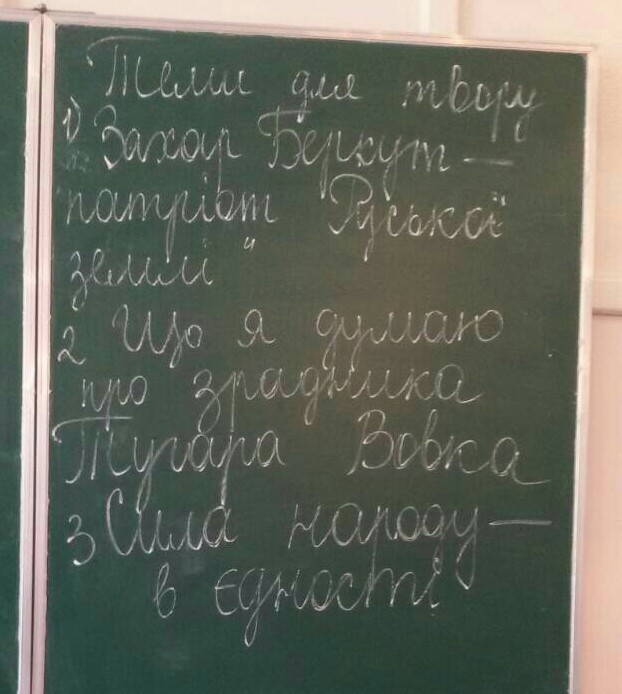 Теми для твору
1) Захар Беркут —
патріот Руської
землі"
2 Що я думаю
про зрадника
Тугара Вовка
3 Сила народу —
в єдності